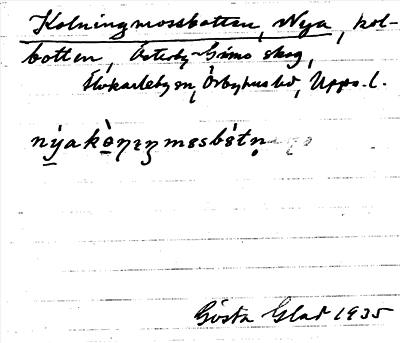 Kolningmossbotten, Nya, kol-
botten, Österby-Gårno skog,
Älvkarleby sn, Örbyhus hd, Upps. l.
nýakòṇıŋmɛsbɛ́tṇ
Gösta Glad 1935